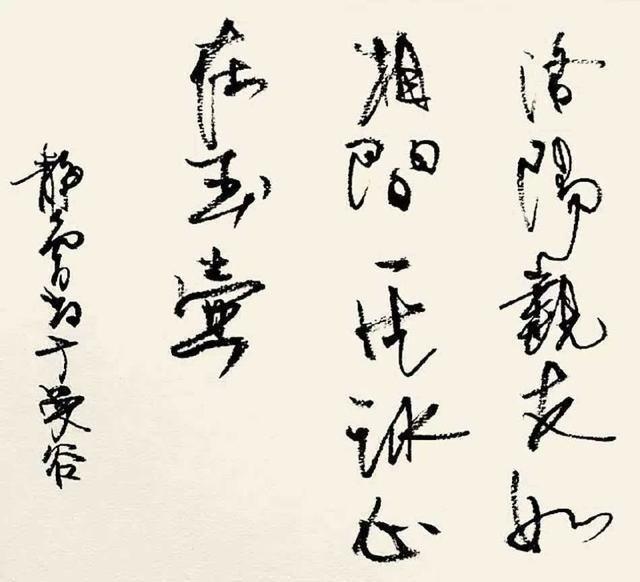 洛陽親友如
相問一片冰心
在玉壺
静雪书于曼谷